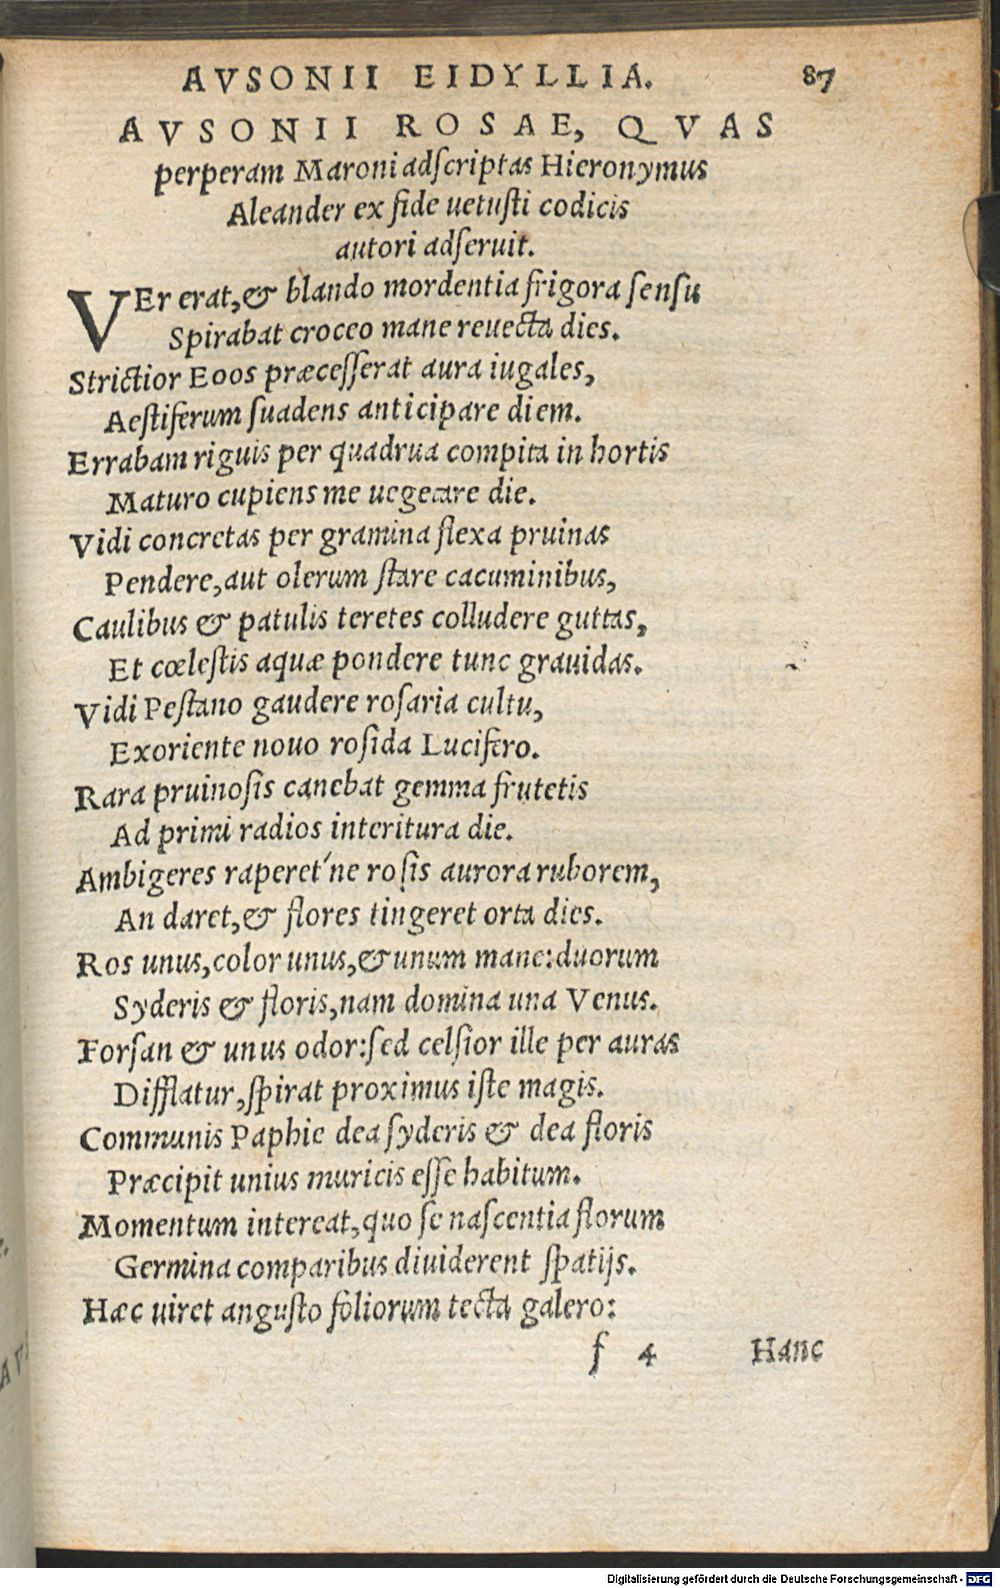 AVSONII EIDYLLIA. 87
AVSONII ROSAE, QVAS
perperam Maroni adſcriptas Hieronymus
Aleander ex fide uetuſti codicis
autori adſeruit.
VEr erat, & blando mordentia frigora ſenſu
Spirabat croceo mane reuecta dies.
Strictior Eoos præceſſerat aura iugales,
Aeſtiferum ſuadens anticipare diem.
Errabam riguis per quadrua compita in hortis
Maturo cupiens me uegetare die.
Vidi concretas per gramina flexa pruinas
Pendere, aut olerum ſtare cacuminibus,
Caulibus & patulis teretes colludere guttas,
Et cœleſtis aquæ pondere tunc grauidas.
Vidi Peſtano gaudere roſaria cultu,
Exoriente nouo roſida Lucifero.
Rara pruinoſis canebat gemma frutetis
Ad primi radios interitura die.
Ambigeres raperet'ne roſis aurora ruborem,
An daret, & flores tingeret orta dies.
Ros unus, color unus, & unum mane: duorum
Syderis & floris, nam domina una Venus.
Forſan & unus odor: ſed celſior ille per auras
Difflatur, ſpirat proximus iſte magis.
Communis Paphie dea ſyderis & dea floris
Præcipit unius muricis eſſe habitum.
Momentum intereat, quo ſe naſcentia florum
Germina comparibus diuiderent ſpatijs.
Hæc uiret anguſto foliorum tecta galero:
f 4 Hanc
Digitalisierung gefördert durch die Deutsche Forschungsgemeinschaft - DFG